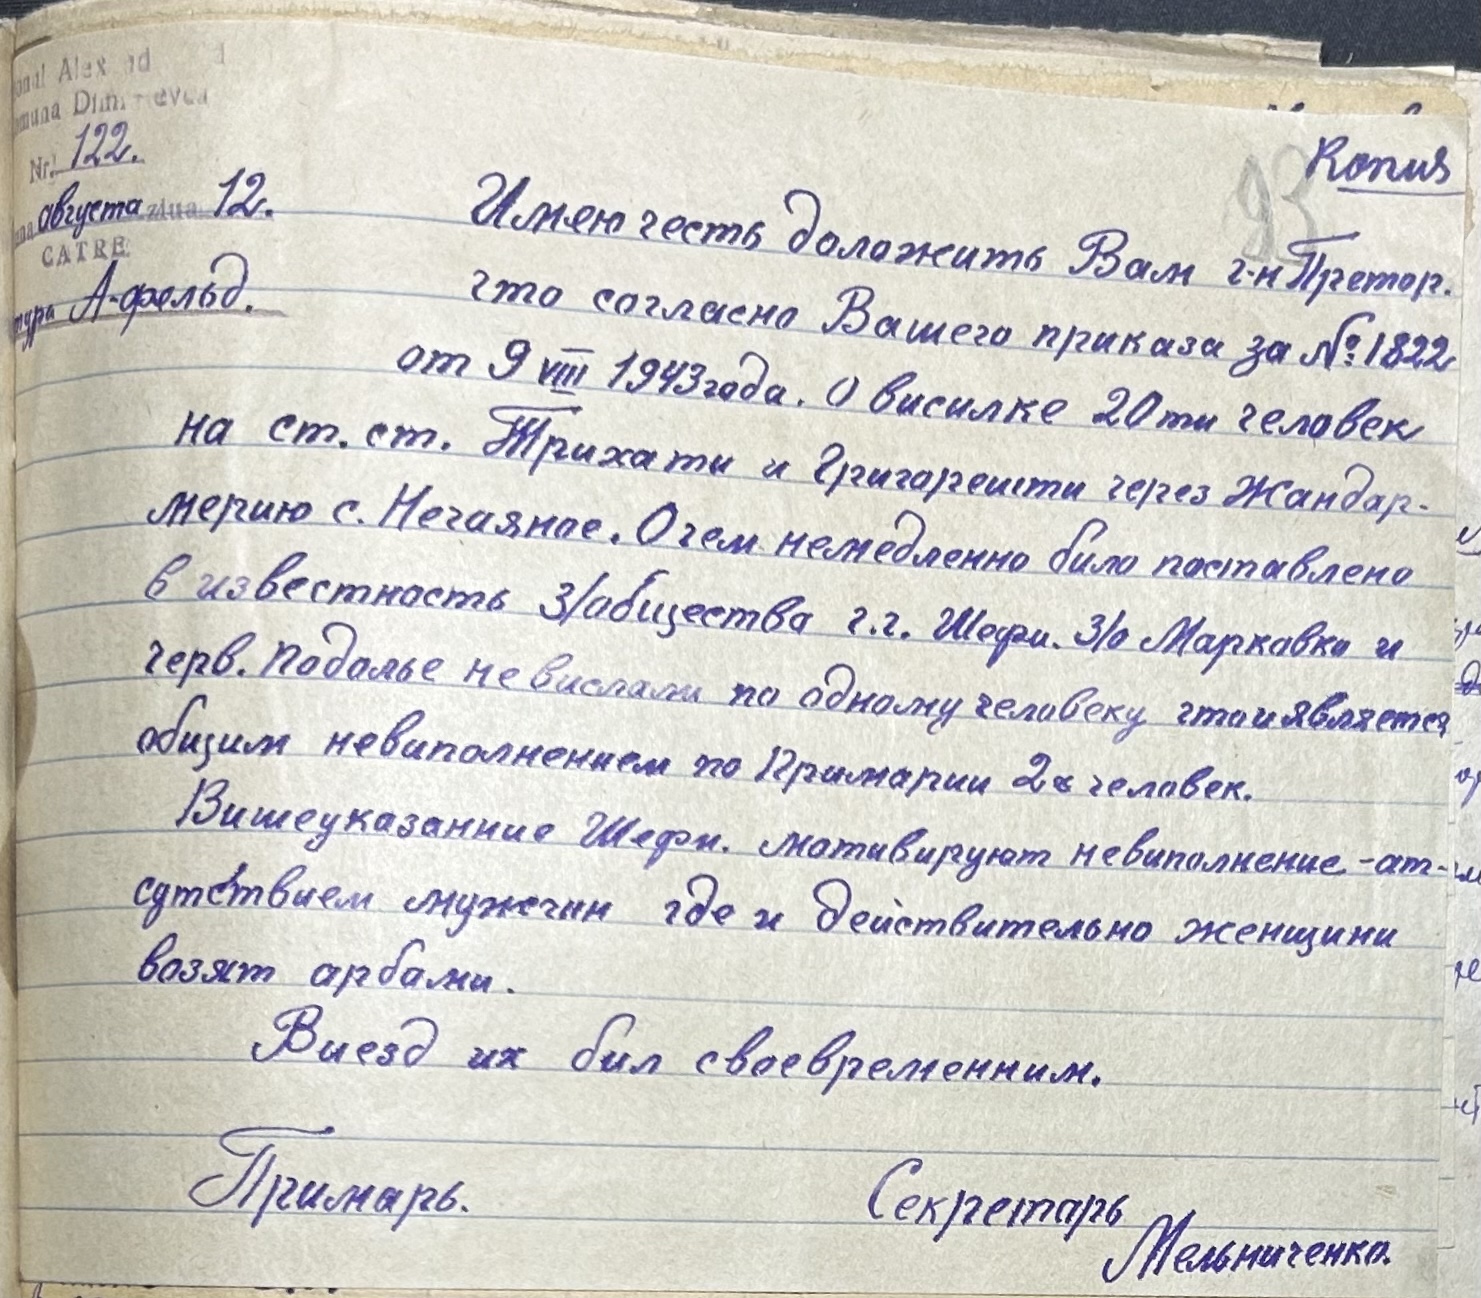 Копия
93
Nr. 122.
августа ziua 12.
CATRE
А-фельд.
Имею честь доложить Вам г-н Претор.
что согласно Вашего приказа за №1822
от 9 VIII 1943 года. О висилке 20ти человек
на ст. ст. Трихати и Григорешти через Жандар-
мерию с. Нечаяное. О чем немедленно било поставлено
в известность З/общества г.г. Шефи. З/о Маркавко и
черв. Подолье не вислали по одному человеку что и является
общим невиполнением по Примарии 2х человек.
Вишеуказанние Шефи. мотивируют невиполнение - от-
сутствием мужчин где и действительно женщини
возят арбами.
Виезд их бил своевременним.
Примарь. Секретарь
Мельниченко.